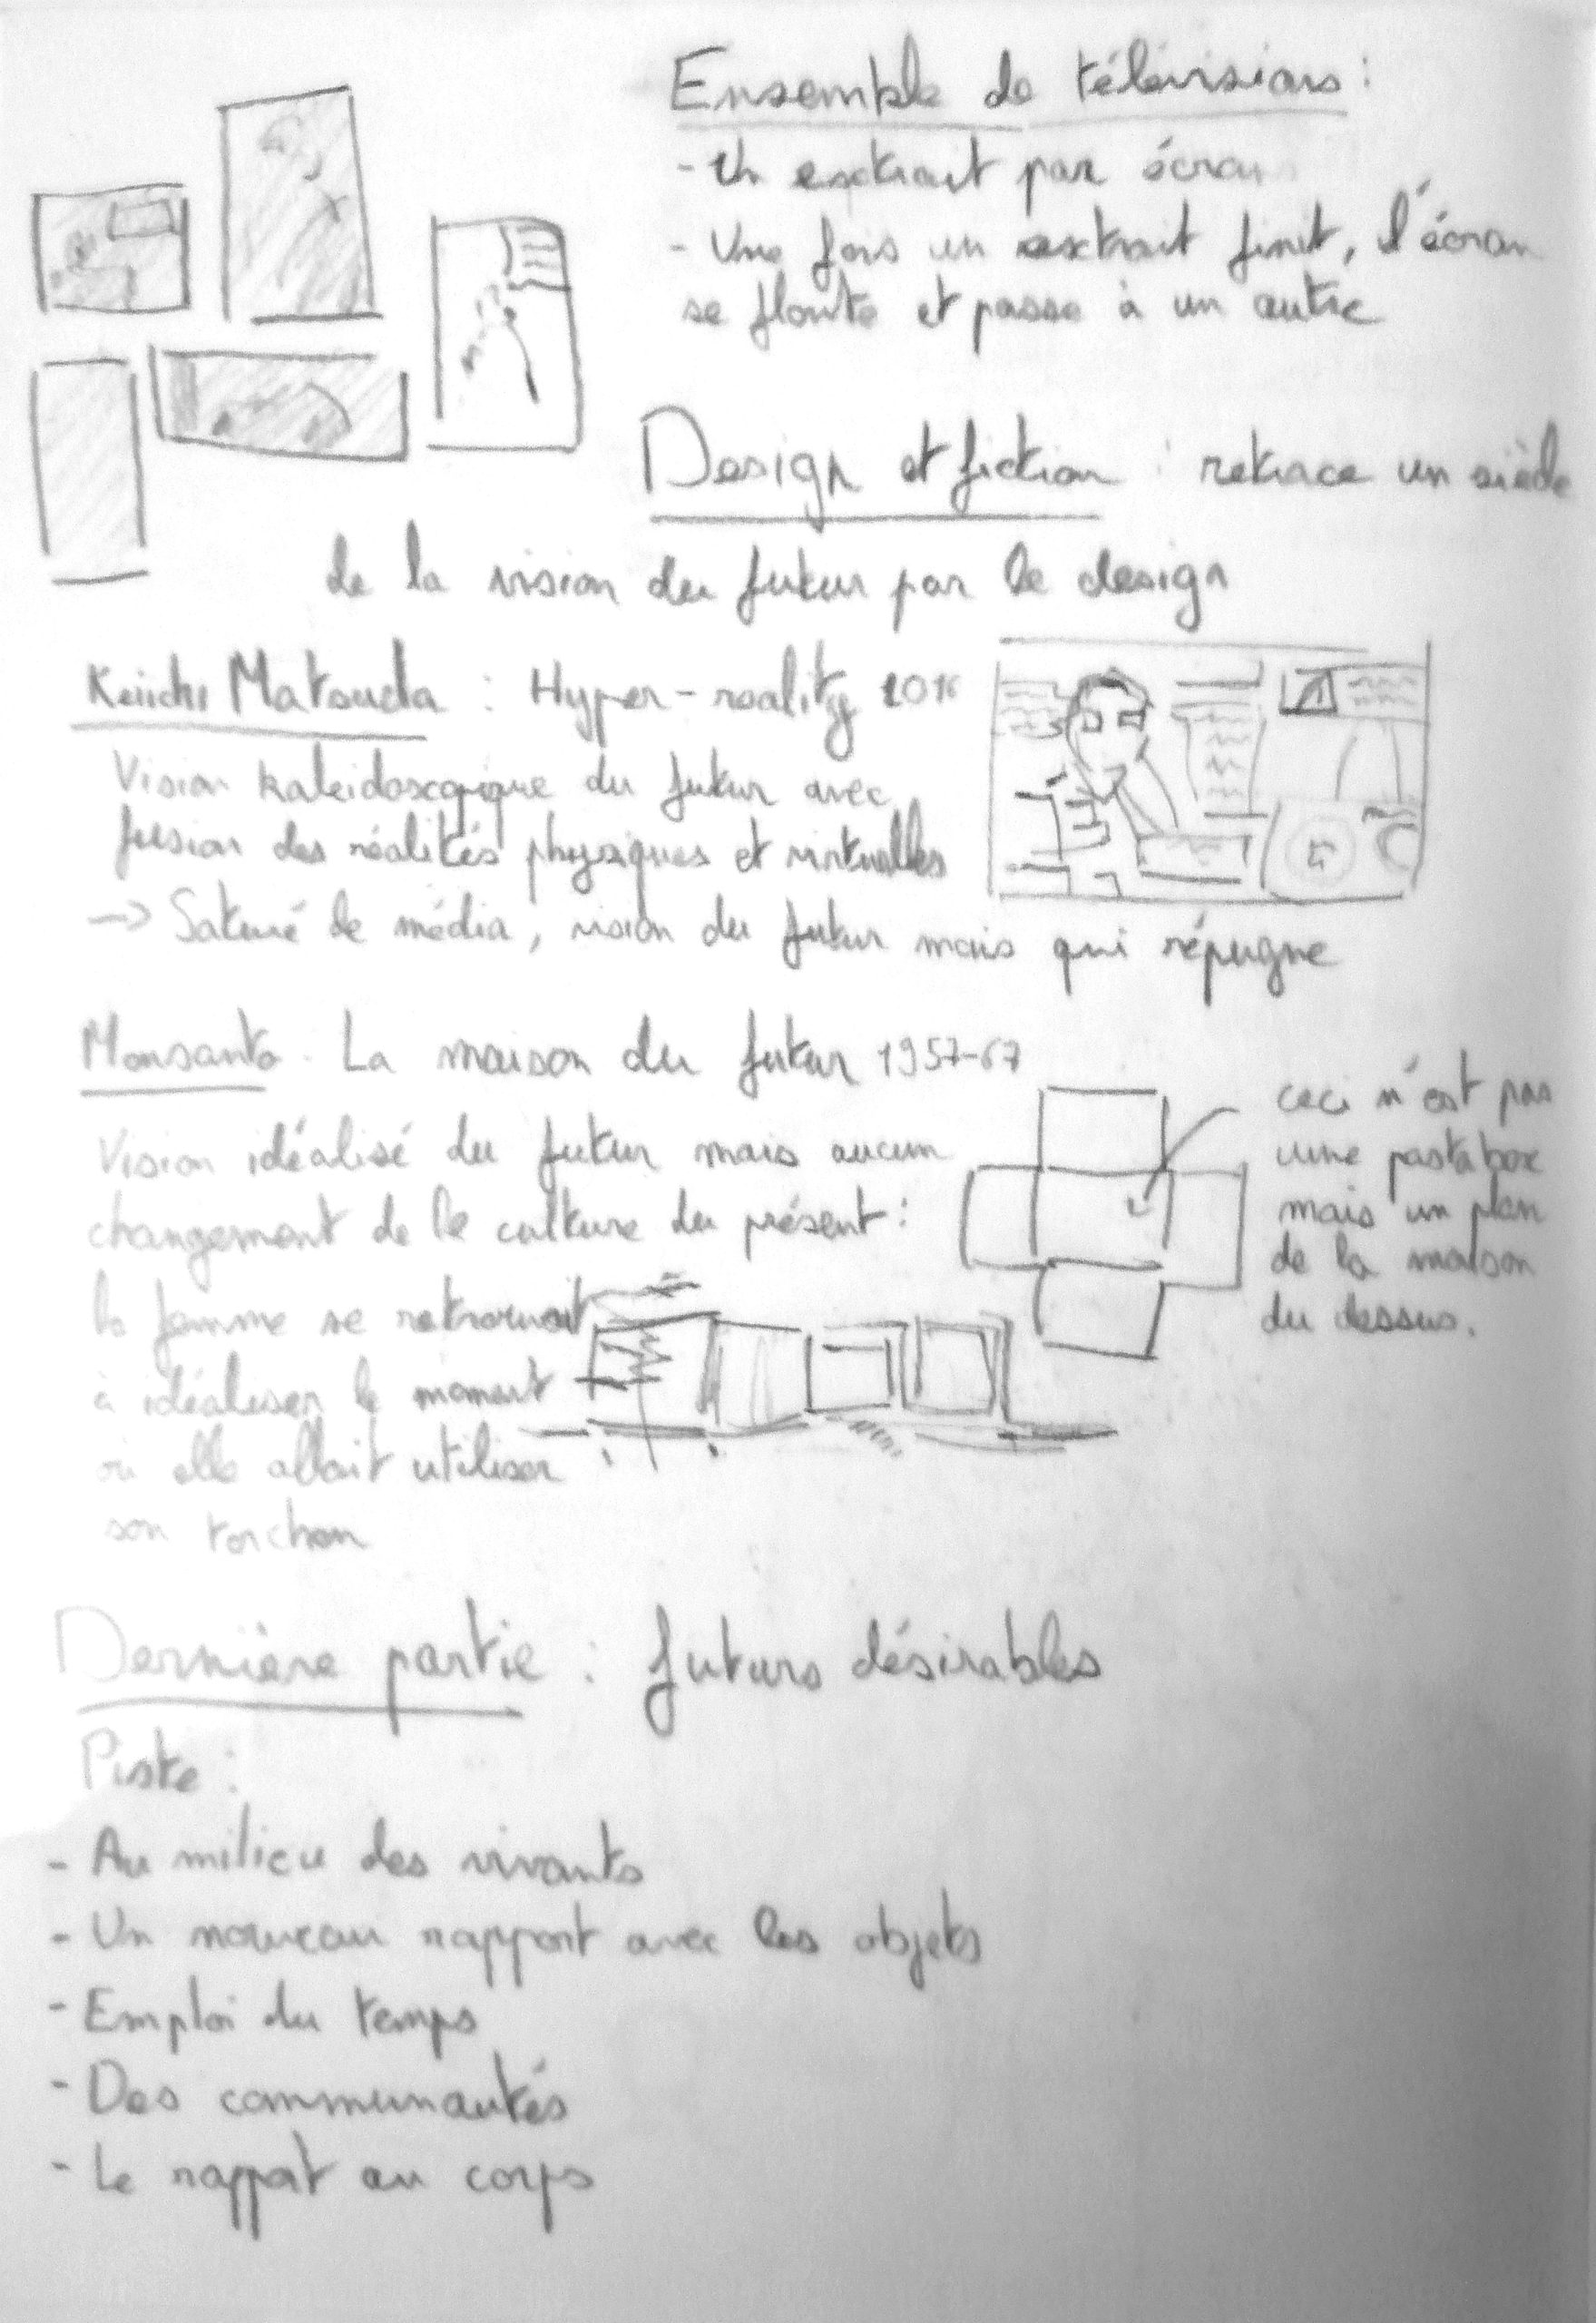 Ensemble de télévisions :
- Un extrait par écran
- Une fois un extrait finit, l'écran
se floute et passe à un autre
Design et fiction : retrace un siècle
de la vision du futur par le design
Keiichi Matsuda : Hyper-reality 2016
Vision kaleidoscopique du futur avec
fusion des réalités physiques et virtuelles
-> Saturé de média, vision du futur mais qui répugne
Monsanto - La maison du futur 1957-67
Vision idéalisé du futur mais aucun
changement de la culture du présent :
la femme se retrouvait
à idéaliser le moment
où elle allait utiliser
son torchon
ceci n'est pas
une pastabox
mais un plan
de la maison
du dessus.
Dernière partie : futurs désirables
Piste :
- Au milieu des vivants
- Un nouveau rapport avec les objets
- Emploi du temps
- Des communautés
- Le rapport au corps